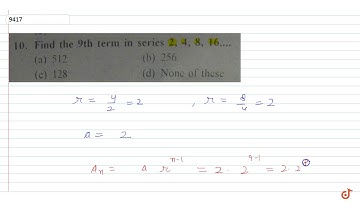 9417
10. Find the 9th term in series 2, 4, 8, 16....
(a) 512 (b) 256
(c) 128 (d) None of these
r = 4/2 = 2 , r = 8/4 = 2
a = 2
an = a r^n-1 = 2 . 2^9-1 = 2 . 2^8